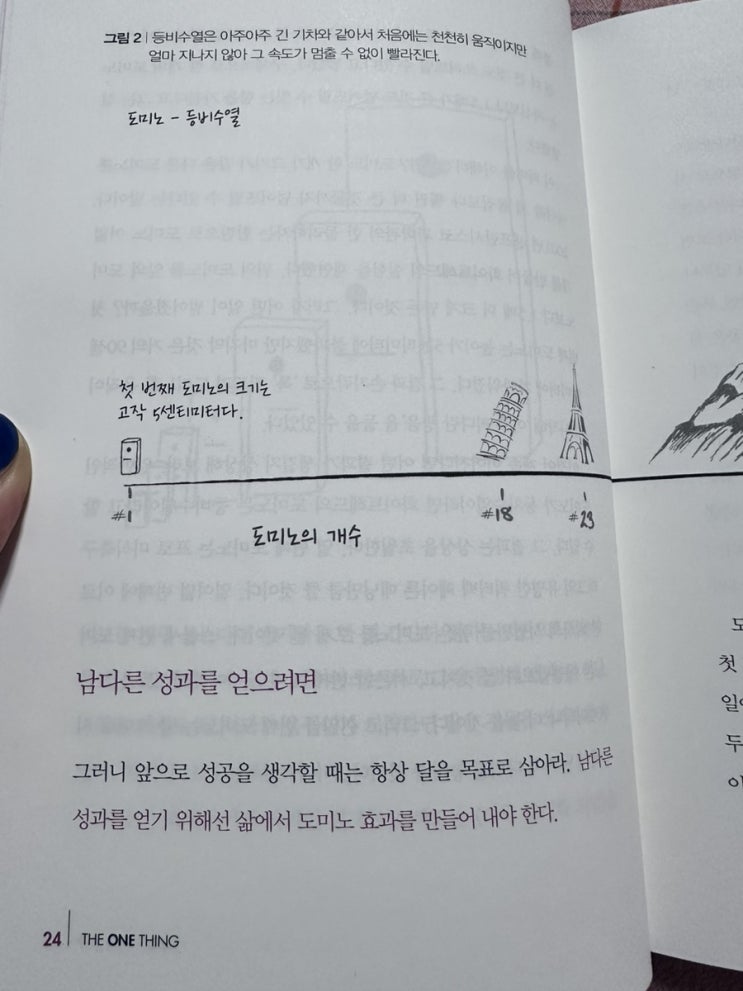 그림 2 | 등비수열은 아주아주 긴 기차와 같아서 처음에는 천천히 움직이지만
얼마 지나지 않아 그 속도가 멈출 수 없이 빨라진다.
도미노 - 등비수열
첫 번째 도미노의 크기는
고작 5센티미터다.
#1
#18
#23
도미노의 개수
남다른 성과를 얻으려면
그러니 앞으로 성공을 생각할 때는 항상 달을 목표로 삼아라. 남다른
성과를 얻기 위해선 삶에서 도미노 효과를 만들어 내야 한다.
24 | THE ONE THING
첫
두